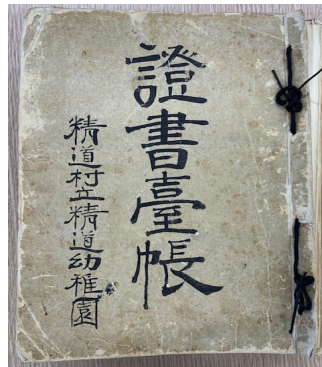 證書臺帳
精道村立精道幼稚園